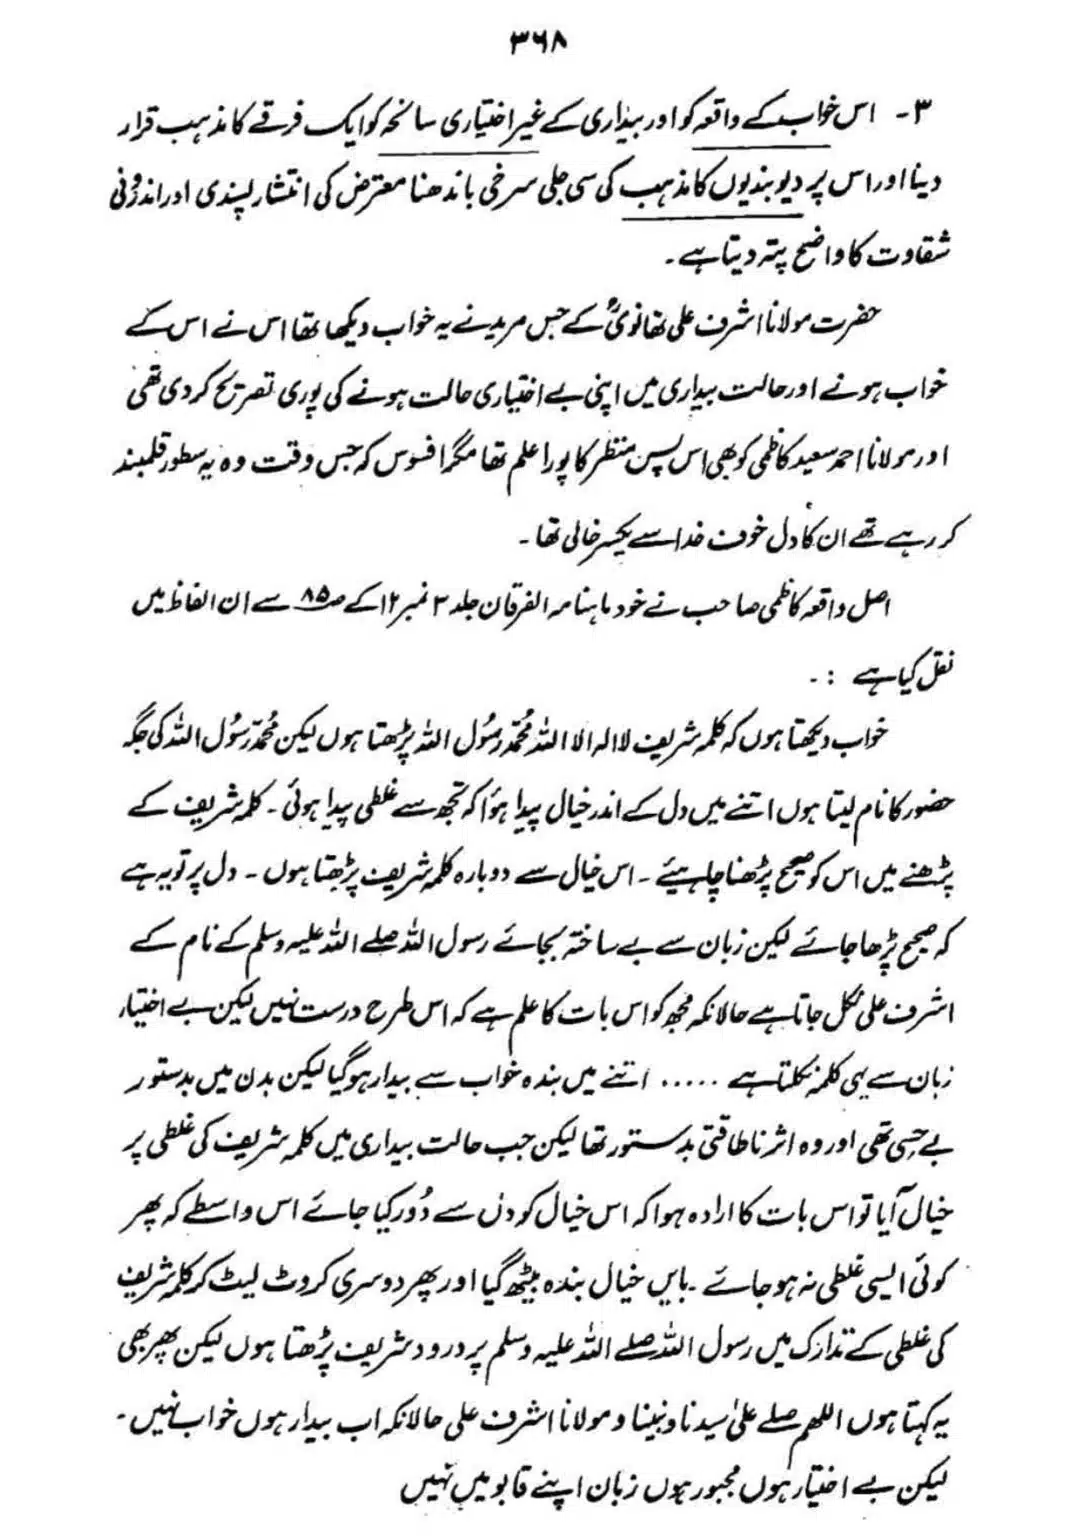 ۳۶۸
۳- اس خواب کے واقعہ کو اور بیداری کے غیر اختیاری سانحہ کو ایک فرقے کا مذہب قرار
دینا اور اس پر دیوبندیوں کا مذہب کی سی جلی سرخی باندھنا معترض کی انتشار پسندی اور اندرونی
شقاوت کا واضح پتہ دیتا ہے۔
حضرت مولانا اشرف علی تھانویؒ کے جس مرید نے یہ خواب دیکھا تھا اس نے اس کے
خواب ہونے اور حالت بیداری میں اپنی بے اختیاری حالت ہونے کی پوری تصریح کر دی تھی
اور مولانا احمد سعید کاظمی کو بھی اس پس منظر کا پورا علم تھا مگر افسوس کہ جس وقت وہ یہ سطور قلمبند
کر رہے تھے ان کا دل خوف خدا سے یکسر خالی تھا۔
اصل واقعہ کاظمی صاحب نے خود ماہنامہ الفرقان جلد ۳ نمبر ۱۲ کے ص ۸۵ سے ان الفاظ میں
نقل کیا ہے :۔
خواب دیکھتا ہوں کہ کلمہ شریف لا الہ الا اللہ محمّد رسُول اللہ پڑھتا ہوں لیکن محمّد رسُول اللہ کی جگہ
حضور کا نام لیتا ہوں اتنے میں دل کے اندر خیال پیدا ہؤا کہ تجھ سے غلطی پیدا ہوئی۔ کلمہ شریف کے
پڑھنے میں اس کو صحیح پڑھنا چاہیئے۔ اس خیال سے دوبارہ کلمہ شریف پڑھتا ہوں۔ دل پر تو یہ ہے
کہ صحیح پڑھا جائے لیکن زبان سے بے ساختہ بجائے رسول اللہ صلے اللہ علیہ وسلم کے نام کے
اشرف علی نکل جاتا ہے حالانکہ مجھ کو اس بات کا علم ہے کہ اس طرح درست نہیں لیکن بے اختیار
زبان سے یہی کلمہ نکلتا ہے ..... اتنے میں بندہ خواب سے بیدار ہو گیا لیکن بدن میں بدستور
بے حسی تھی اور وہ اثر ناطاقتی بدستور تھا لیکن جب حالت بیداری میں کلمہ شریف کی غلطی پر
خیال آیا تو اس بات کا ارادہ ہوا کہ اس خیال کو دل سے دُور کیا جائے اس واسطے کہ پھر
کوئی ایسی غلطی نہ ہو جائے۔ بایں خیال بندہ بیٹھ گیا اور پھر دوسری کروٹ لیٹ کر کلمہ شریف
کی غلطی کے تدارک میں رسول اللہ صلے اللہ علیہ وسلم پر درود شریف پڑھتا ہوں لیکن پھر بھی
یہ کہتا ہوں اللھم صلے علیٰ سیدنا و نبینا و مولانا اشرف علی حالانکہ اب بیدار ہوں خواب نہیں۔
لیکن بے اختیار ہوں مجبور ہوں زبان اپنے قابو میں نہیں